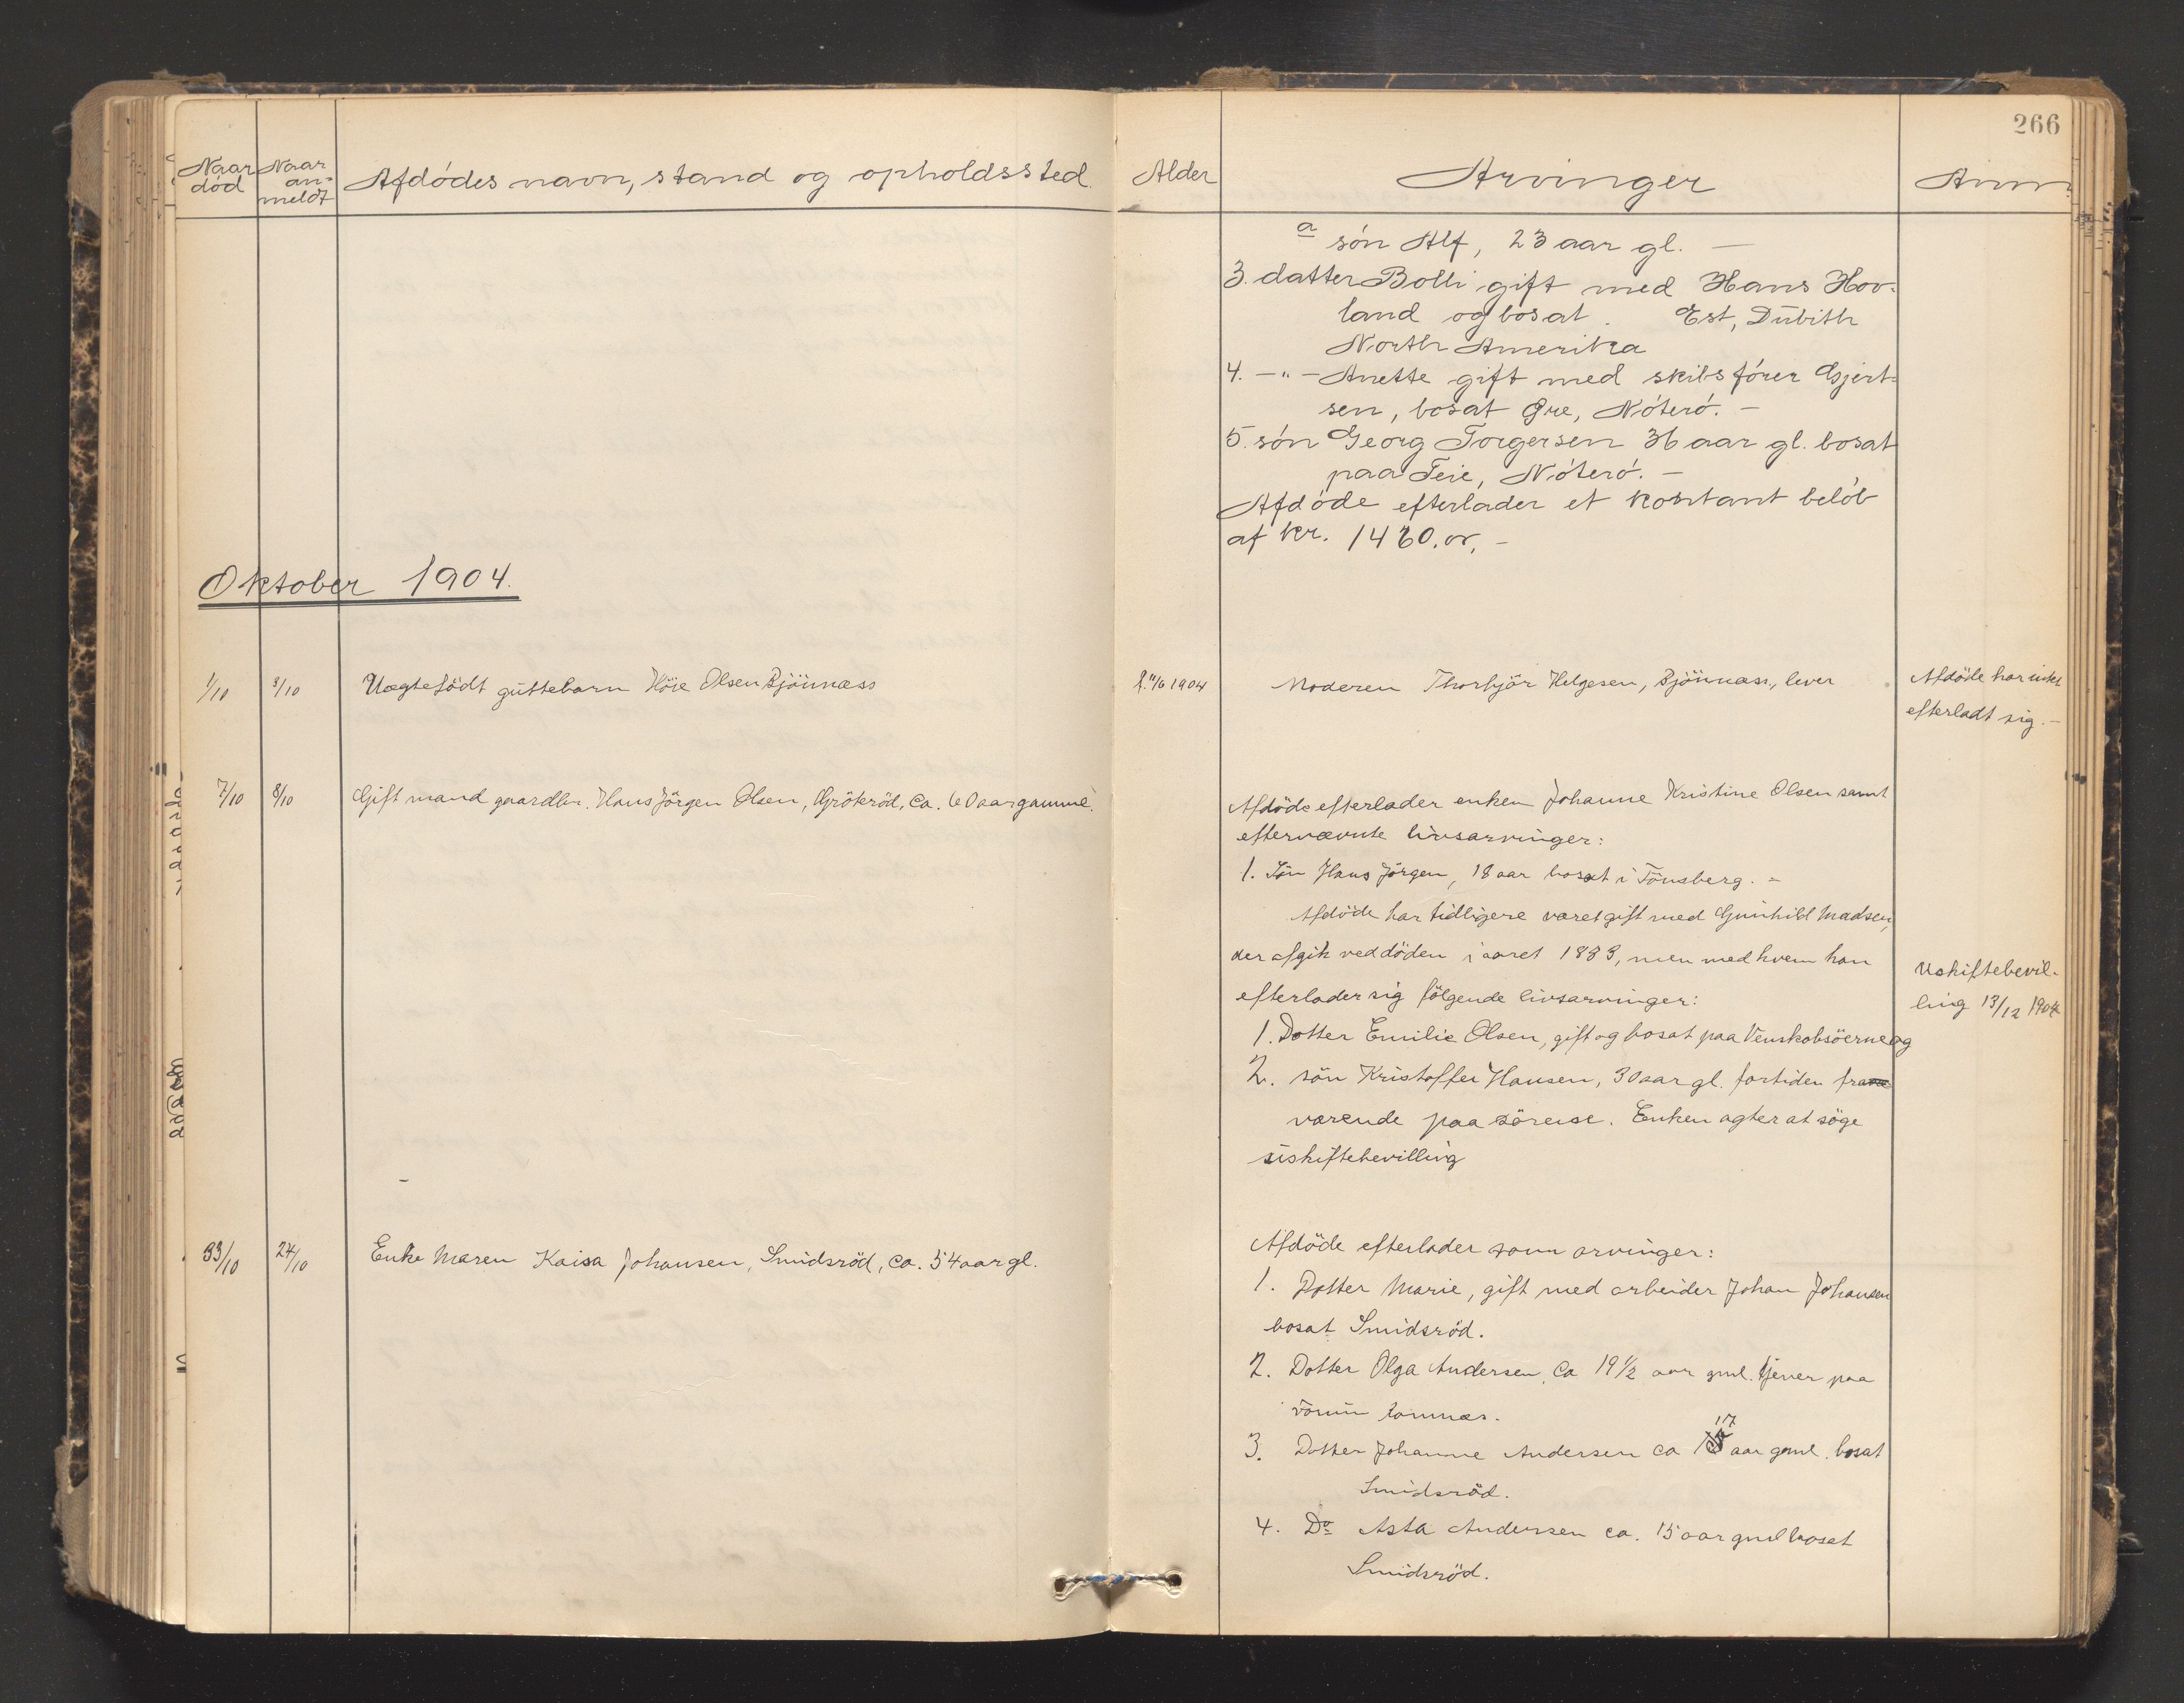 266
Naar død
Naar an-meldt
Afdødes navn, stand og opholdssted.
Alder
Arvinger
Anm.
a søn Alf, 23 aar gl. —
3. datter Bolli gift med Hans Hov-
land og bosat . Est, Dubith
North Amerika
4. —"— Anette gift med skibsfører Gjert-
sen, bosat Øre, Nøterø. —
5. søn Georg Torgersen 36 aar gl. bosat
paa Teie, Nøterø. —
Afdøde efterlader et kontant beløb
af kr.
Oktober 1904.
1/10
3/10
Uægtefödt guttebarn Höie Olsen Bjönnæss
f. 11/6 1904
Moderen Thorbjör Helgesen, Bjönnæss, lever
Afdöde har intet
efterladt sig. —
7/10
8/10
Gift mand gaardbr. Hans Jörgen Olsen, Grökröd, ca. 60 aar gammel.
Afdöde efterlader enken Johanne Kristine Olsen samt
efternævnte livsarvinger:
1. Sön Hans Jörgen, 18 aar bosat i Tönsberg. –
Afdöde har tidligere været gift med Gunhild Madsen,
der afgik ved döden i aaret 1883, men med hvem han
efterlader sig fölgende livsarvinger:
1. Datter Emilie Olsen, gift og bosat paa Venskabsöerne og
2. sön Kristoffer Hansen, 30 aar gl. fortiden fra
værende paa söreise. Enken agter at söge
uskiftebevilling
Uskiftebevil-
ling 13/12 1904
23/10
24/10
Enke Maren Kaisa Johansen, Smidsröd, ca. 54 aar gl.
Afdöde efterlader som arvinger:
1. Datter Marie, gift med arbeider Johan Johansen
bosat Smidsröd.
2. Datter Olga Andersen, ca 19 1/2 aar gml. tjener paa
3. Datter Johanne Andersen ca 17 aar gml. bosat
Smidsröd.
4. Do Asta Andersen ca. 15 aar gml bosat
Smidsröd.